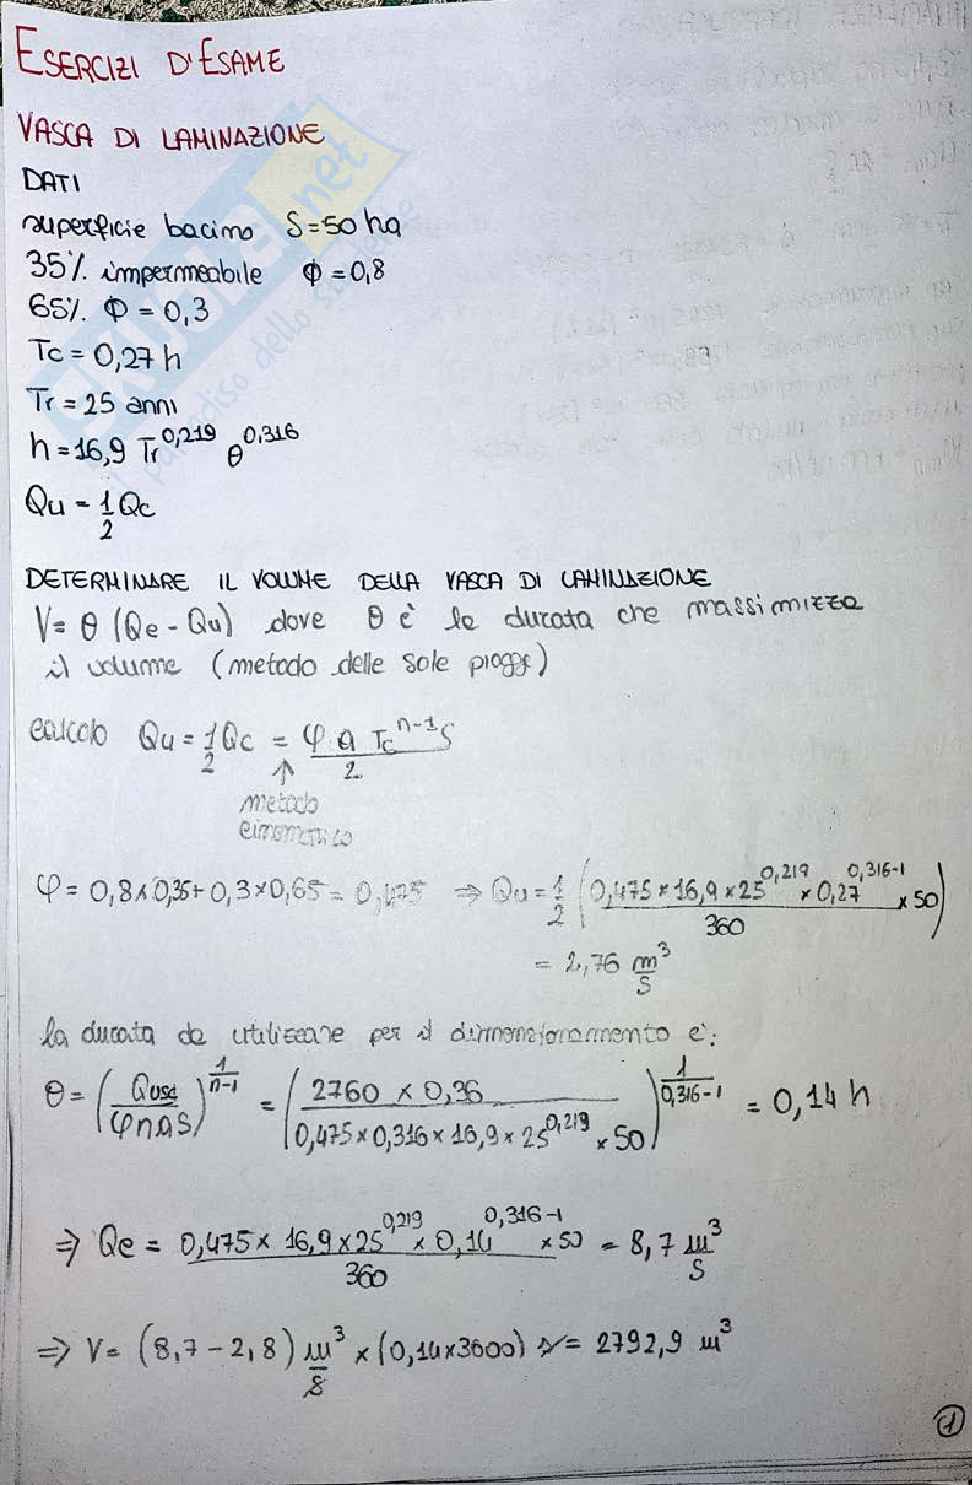 ESERCIZI D'ESAME
VASCA DI LAMINAZIONE
DATI
superficie bacino S=50 ha
35% impermeabile Φ=0,8
65% Φ=0,3
Tc=0,27 h
Tr=25 anni
h=16,9 Tr^0,219 θ^0,316
Qu=1/2 Qc
DETERMINARE IL VOLUME DELLA VASCA DI LAMINAZIONE
V= θ (Qe-Qu) dove θ è la durata che massimizza
il volume (metodo delle sole piogge)
calcolo Qu=1/2 Qc = φ a Tc^n-1 S / 2
↑
metodo
cinematico
φ= 0,8×0,35+0,3×0,65= 0,475 ⇒ Qu=1/2 (0,475×16,9×25^0,219 ×0,27^0,316-1 ×50 / 360)
= 2,76 m³/s
la durata da utilizzare per il dimensionamento è:
θ= (Qusc / φnaS)^1/n-1 = (2760 × 0,36 / 0,475×0,316×16,9×25^0,219 ×50)^1/0,316-1 = 0,14 h
⇒ Qe = 0,475× 16,9×25^0,219 × 0,14^0,316-1 ×50 / 360 = 8,7 m³/s
⇒ V= (8,7-2,8) m³/s × (0,14×3600) s= 2792,9 m³
1
SKUOLA.net
il paradiso dello studente